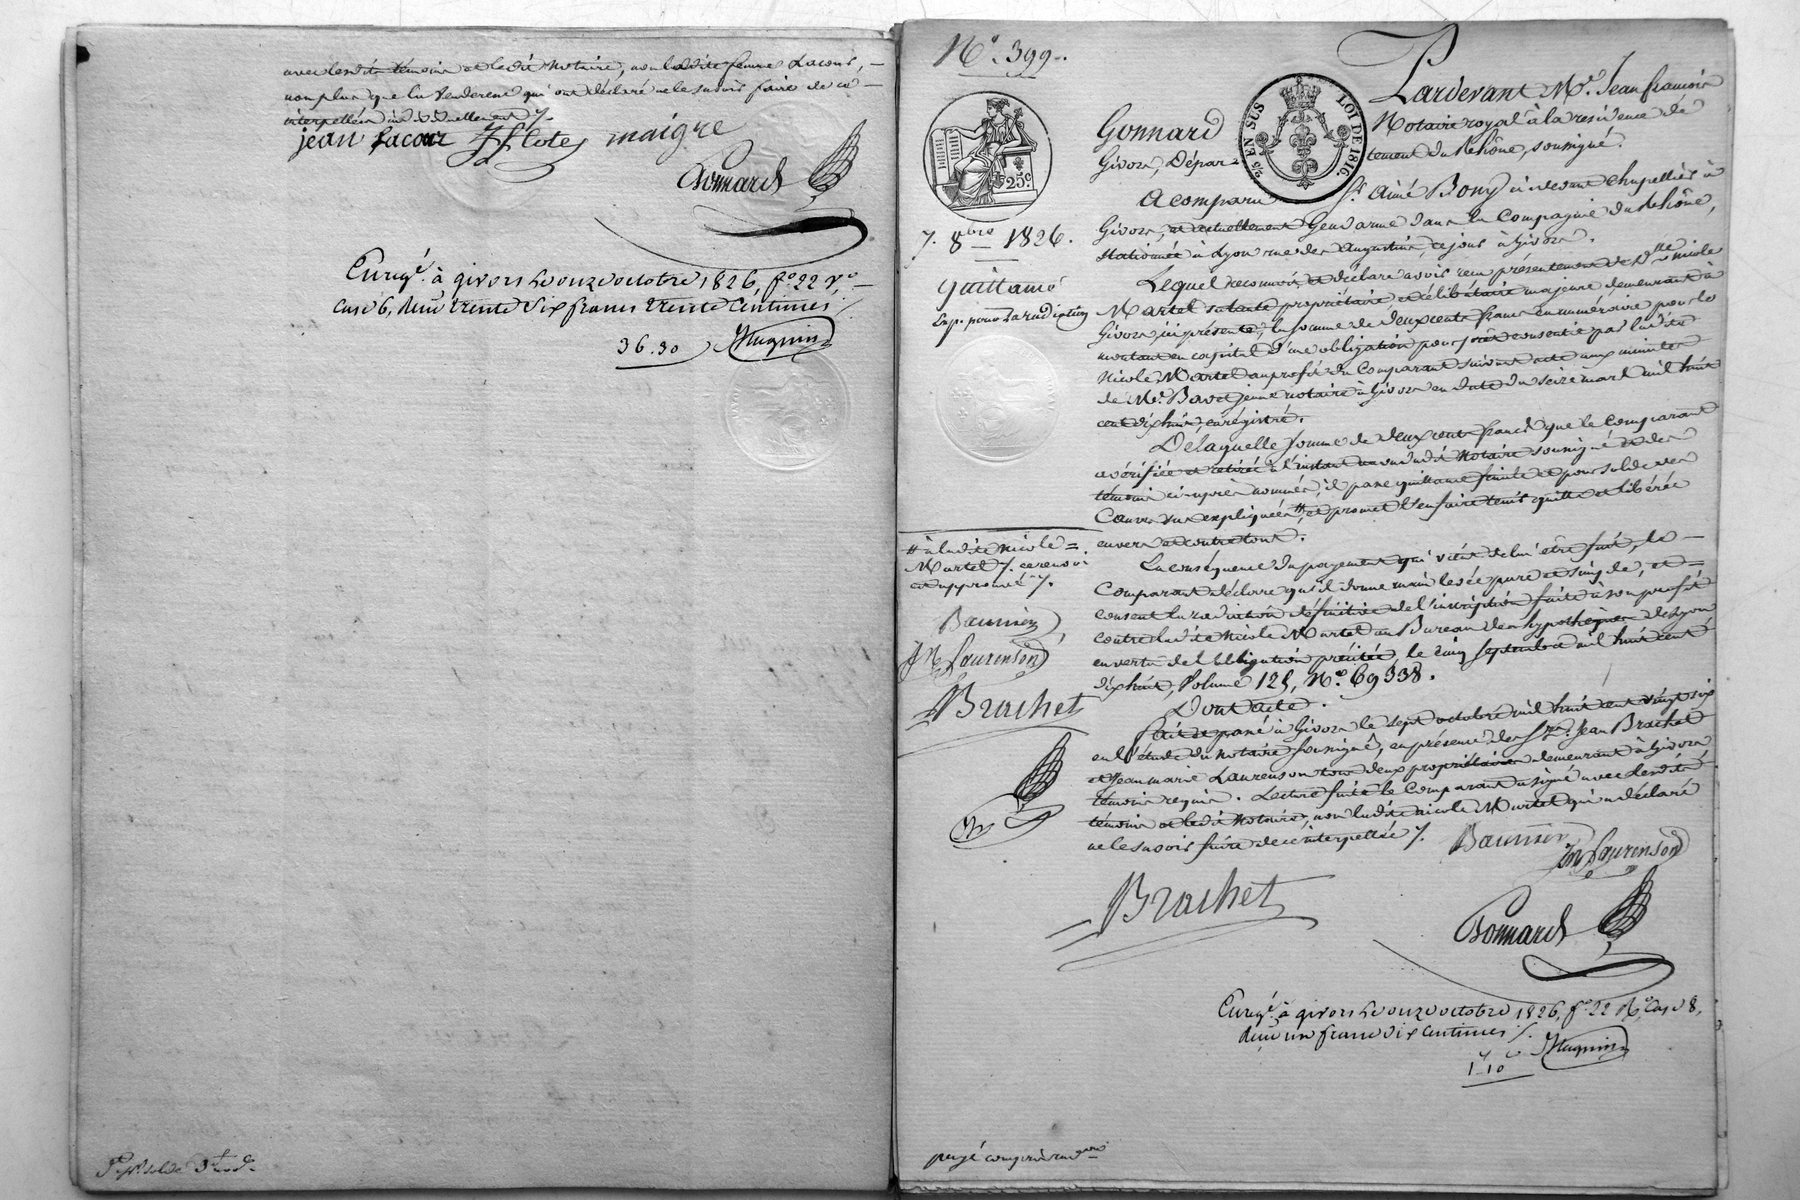 avec lesdits témoins et ledit Notaire, non ladite femme Lacour, —
non plus que les Vendereux qui ont déclaré ne le savoir faire de ce —
interpellés individuellement ./.
jean Lacour JFlotes maigre
Gonnard
Enregé. à givors le onze octobre 1826, fo. 22 Vo. —
Case 6, Reçu trente Six francs trente Centimes ./.
36.30 Huguin
No. 399.
25c.
2/5 EN SUS LOI DE 1816.
7. 8bre 1826.
Quittance
Exp. pour la radiation
Pardevant Me. Jean francois
Gonnard Notaire royal à la résidence de
Givors, Dépar- tement du Rhône, soussigné.
A comparu Sr. Aimé Bony ci devant Chapellier à
Givors, et actuellement Gendarme dans la Compagnie du Rhône,
Stationnée à Lyon rue des augustins, ce jour à Givors.
Lequel reconnoit et déclare avoir reçu présentement de Dlle Nicole
Martel propriétaire et célibataire majeure demeurant à
Givors, ici présente, la somme de deux cents francs en numéraire pour le
montant en capital d'une obligation pour prêt consentie par ladite
Nicole Martel au profit du Comparant suivant acte aux minutes
de Me. Bavet jeune notaire à Givors en date du seize mars mil huit
cent dix huit, enrégistré.
De laquelle somme de deux cents francs que le Comparant
a vérifiée et retirée à l'instant au vu dudit Notaire soussigné et des
témoins ci-après nommés, il passe quittance finale et pour solde des
Causes sus expliquées # et promet l'en faire tenir quitte et libérée
envers et contre tous.
# à ladite Nicole =
Martel ./. ce renvoi
est approuvé ./.
En conséquence du payement qui vient de lui être fait, le —
Comparant déclare qu'il donne main levée pure et simple, et =
consent la radiation définitive de l'inscription faite à son profit
contre ladite Nicole Martel au Bureau des hypothèques de Lyon
en vertu de l'obligation précitée le cinq septembre mil huit cent
dix huit, Volume 125, No. 69338.
Dont acte.
Fait et passé à Givors le sept octobre mil huit cent vingt six
en l'étude du Notaire soussigné, en présence des Srs. Jean Brachet
et Jean marie Laurenson tous deux propriétaires demeurant à Givors
témoins requis. Lecture faite le Comparant a signé avec lesdits
témoins et ledit Notaire, non ladite Nicole Martel qui a déclaré
ne le savoir faire de ce interpellée ./.
JM Laurenson
Brachet
JM Laurenson
Brachet
Gonnard
Enregé. à givors le onze octobre 1826, fo. 22 Ro. Case 8,
Reçu un franc dix Centimes ./.
1.10 Huguin